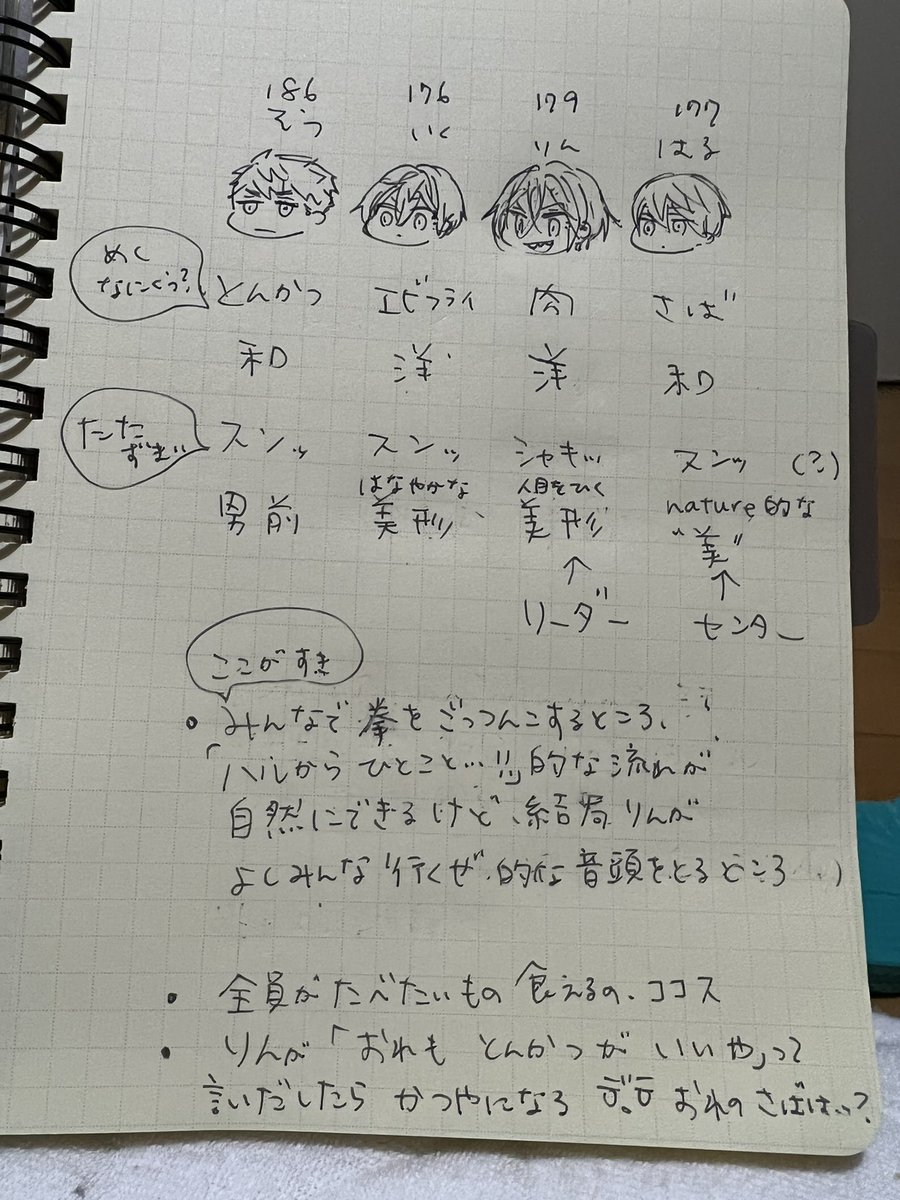 186 176 179 177
そう いく りん はる
めし
なにくう?
とんかつ エビフライ 肉 さば
和 洋 洋 和
たたずまい
スンッ スンッ シャキッ スンッ (?)
男前 はなやかな美形 人目をひく美形 nature的な
"美"
↑ ↑
リーダー センター
ここがすき
・みんなで拳をごっつんこするところ、
「ハルからひとこと…!!」的な流れが
自然にできるけど、結局りんが
よしみんな行くぜ的な音頭をとるところ
・全員がたべたいもの食えるの、ココス
・りんが「おれもとんかつがいいや」って
言いだしたらかつやになる おれのさばはッ?